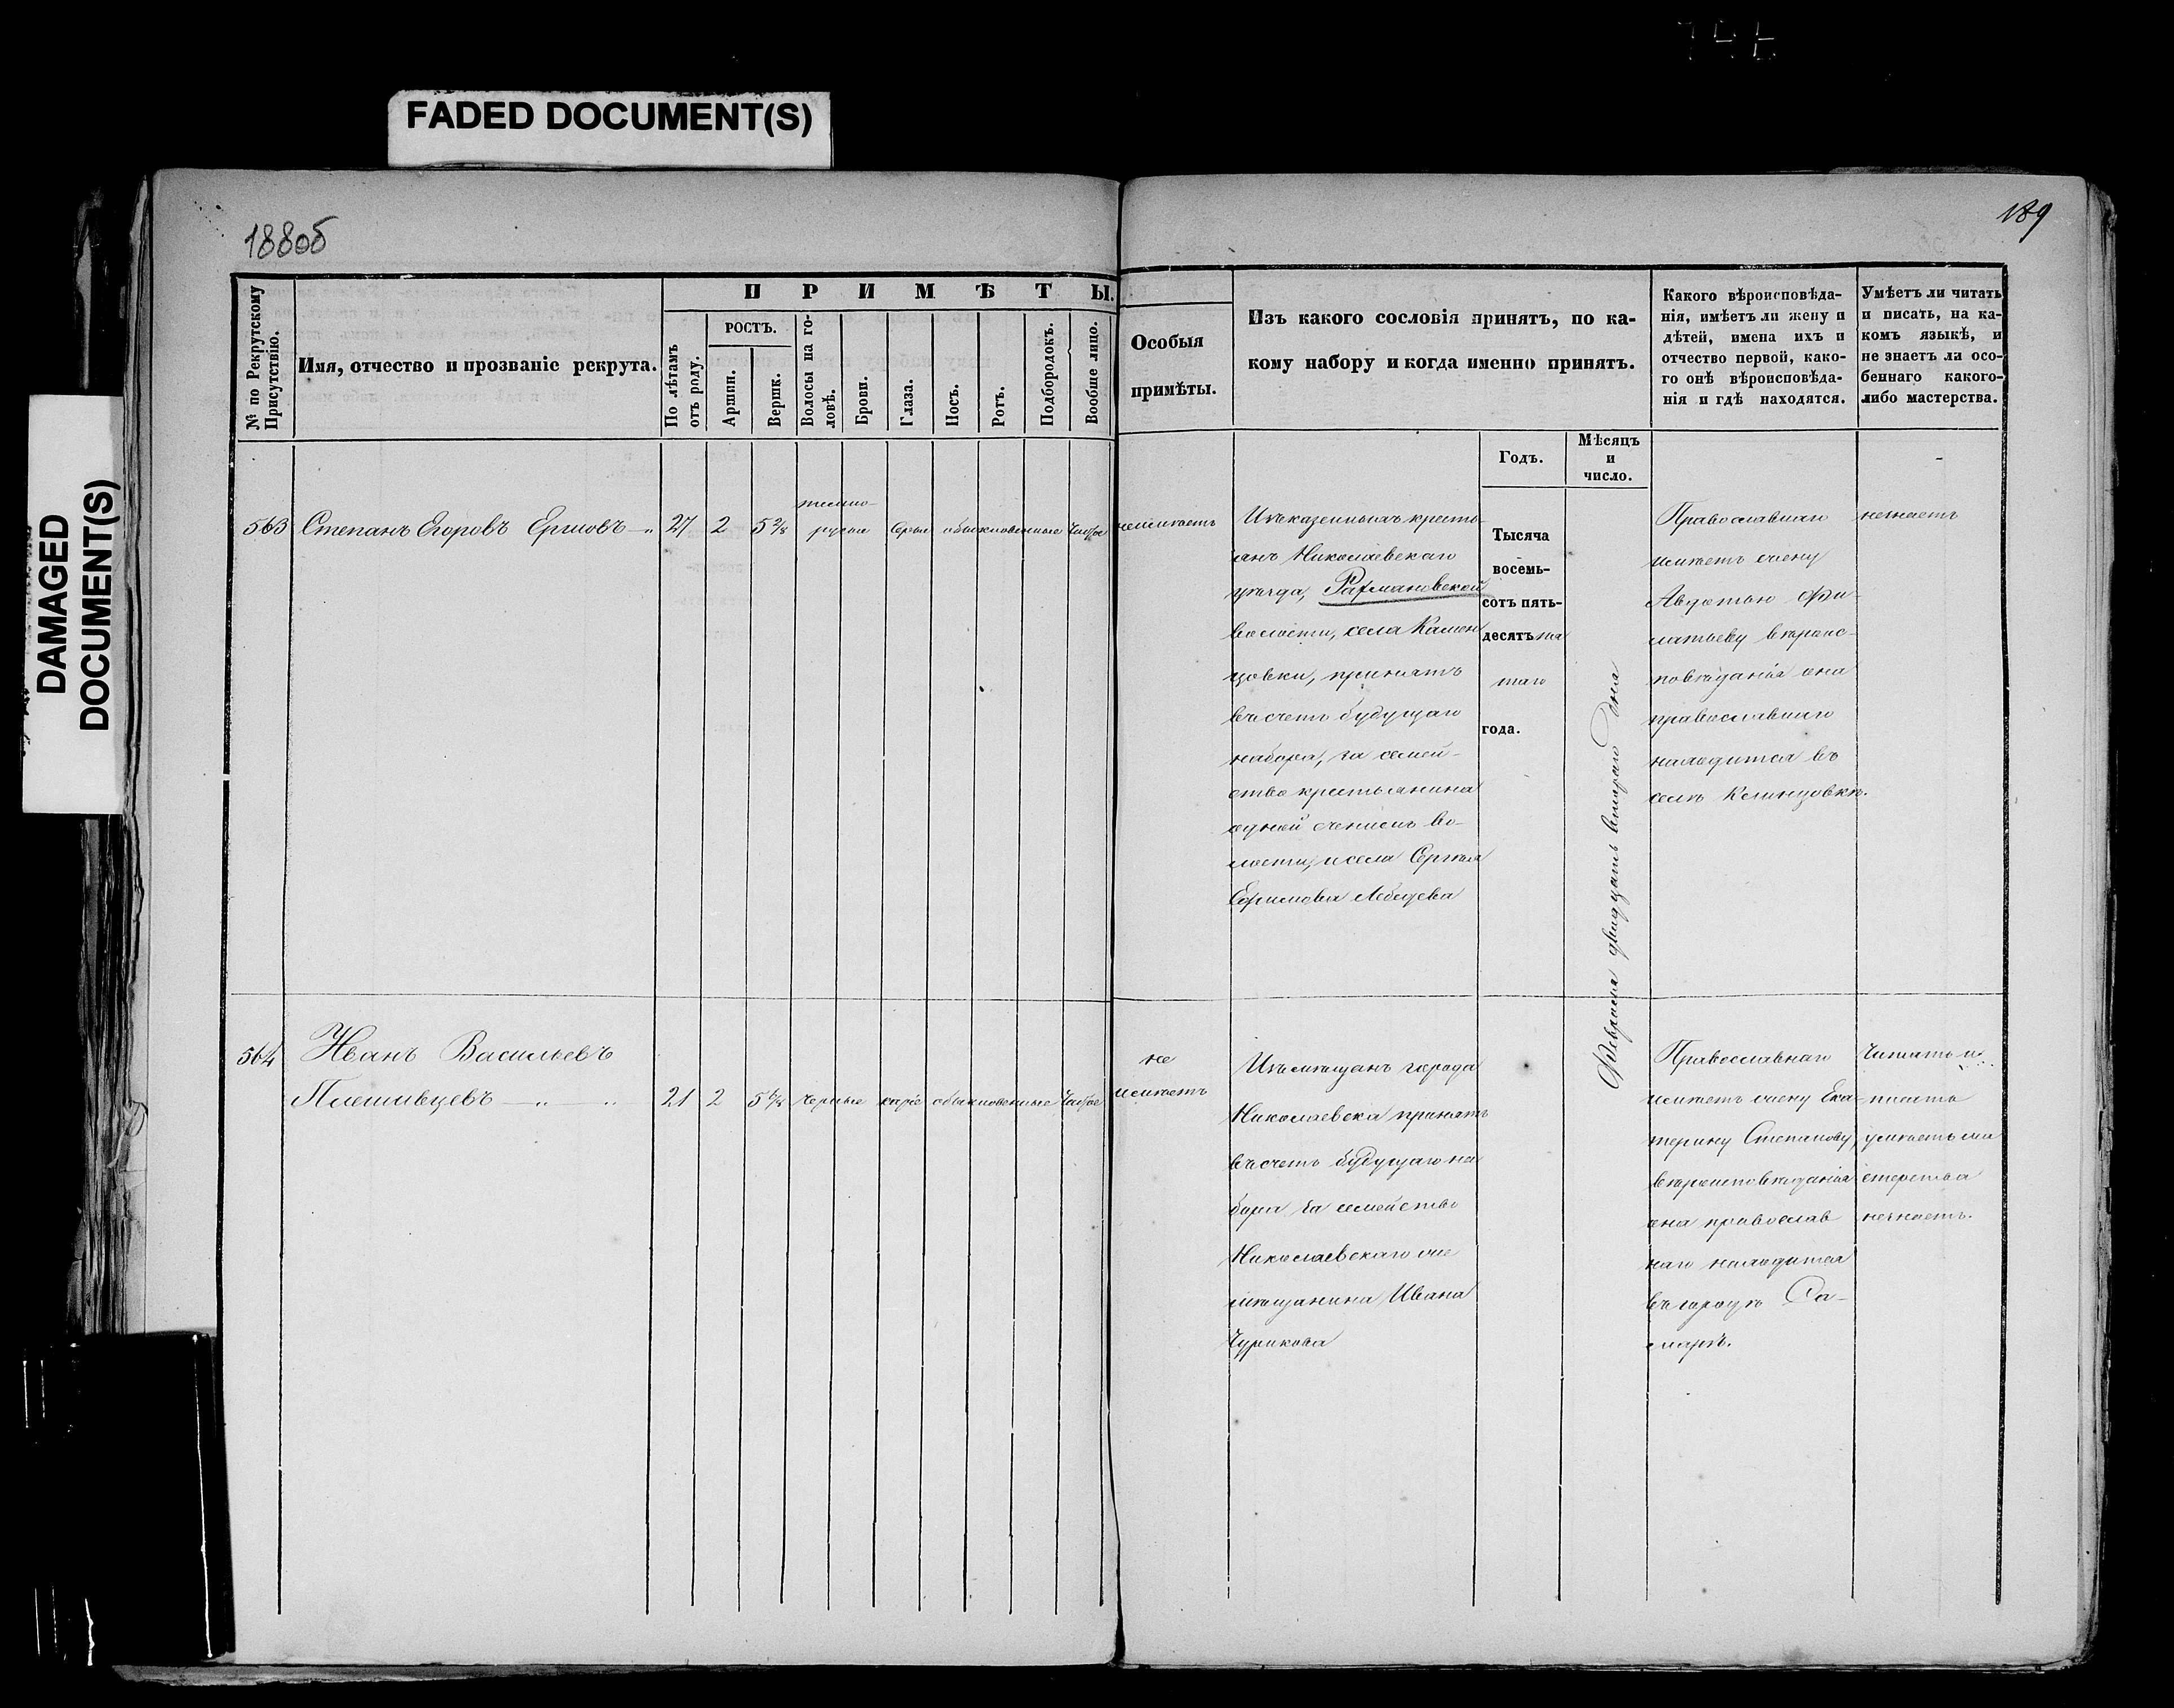 FADED DOCUMENT(S)
DAMAGED
DOCUMENT(S)
188об
189
№ по Рекрутскому
Присутствію.
Имя, отчество и прозваніе рекрута.
ПРИМѢТЫ.
По лѣтамъ
отъ роду.
РОСТЪ.
Аршин.
Вершк.
Волосы на го-
ловѣ.
Брови.
Глаза.
Носъ.
Ротъ.
Подбородокъ.
Вообще лицо.
Особыя
примѣты.
Изъ какого сословія принятъ, по ка-
кому набору и когда именно принятъ.
Годъ.
Мѣсяцъ
и
число.
Какого вѣроисповѣда-
нія, имѣетъ ли жену и
дѣтей, имена ихъ и
отчество первой, како-
го онѣ вѣроисповѣда-
нія и гдѣ находятся.
Умѣетъ ли читать
и писать, на ка-
комъ языкѣ, и
не знаетъ ли осо-
беннаго какого-
либо мастерства.
563
Степанъ Егоровъ
27
2
5 2/8
темно-
русые
серые
обыкновенные
чистое
неимѣетъ
Изъ казенныхъ кресть-
янъ Николаевскаго
уѣзда, Рахмановской
волости, села Камен
цовки, принятъ
въ счетъ будущаго
набора, за семей-
ство крестьянина
одной съ нимъ во-
лости, и села Сергѣя
Ефимова Лебедева
Тысяча
восемь-
сотъ пять-
десятъ пя
таго
года.
Февраля двадцать втораго дня
Православнаго
имѣетъ жену
Авдотью Фи-
латьеву вѣроис-
повѣданія она
православнаго
находится въ
селѣ
незнаетъ
564
Иванъ Васильевъ
Плешивцевъ
21
2
5 6/8
черные
каріе
обыкновенные
чистое
не
имѣетъ
Изъ мѣщанъ города
Николаевска принятъ
въ счетъ будущаго на
бора за семейство
Николаевскаго же
мѣщанина Ивана
Чурикова
Православнаго
имѣетъ жену Ека-
терину Степанову,
вѣроисповѣданія
она православ
наго находится
въ городѣ Са-
марѣ.
Читать и
писать
умѣетъ ма
стерства
незнаетъ.